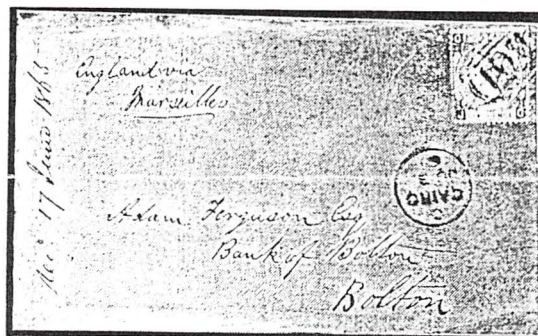 England via
Marseilles
17 June 1868
CAIRO
Adam Ferguson Esq
Bank of Bolton
Bolton